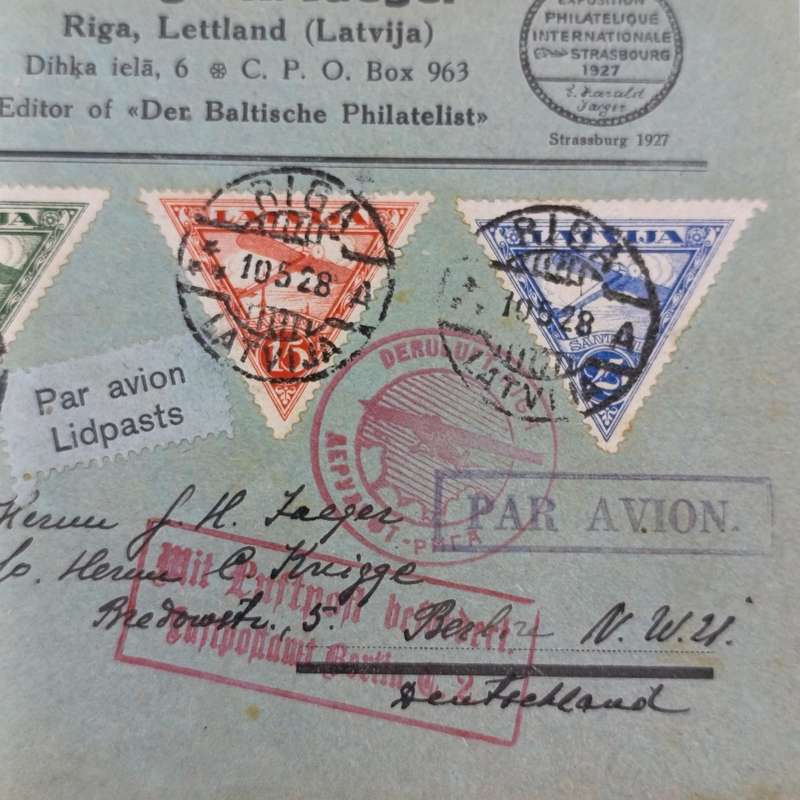 Riga, Lettland (Latvija)
Dihķa ielā, 6 ❀ C. P. O. Box 963
Editor of «Der Baltische Philatelist»
EXPOSITION
PHILATELIQUE
INTERNATIONALE
STRASBOURG
1927
E. Harald
Jaeger
Strassburg 1927
LATVIJA
15
RIGA
10 5 28
A
LATVIJA
LATVIJA
SANTIMI
25
RIGA
10 5 28
A
LATVIJA
Par avion
Lidpasts
DERULUFT
ДЕРУЛЮФТ-РИГА
PAR AVION.
Herrn J. H. Jaeger
c/o. Herrn C. Knigge
Bredowstr., 5. Berlin N. W. 21.
Deutschland
Mit Luftpost befördert.
Luftpostamt Berlin C. 2